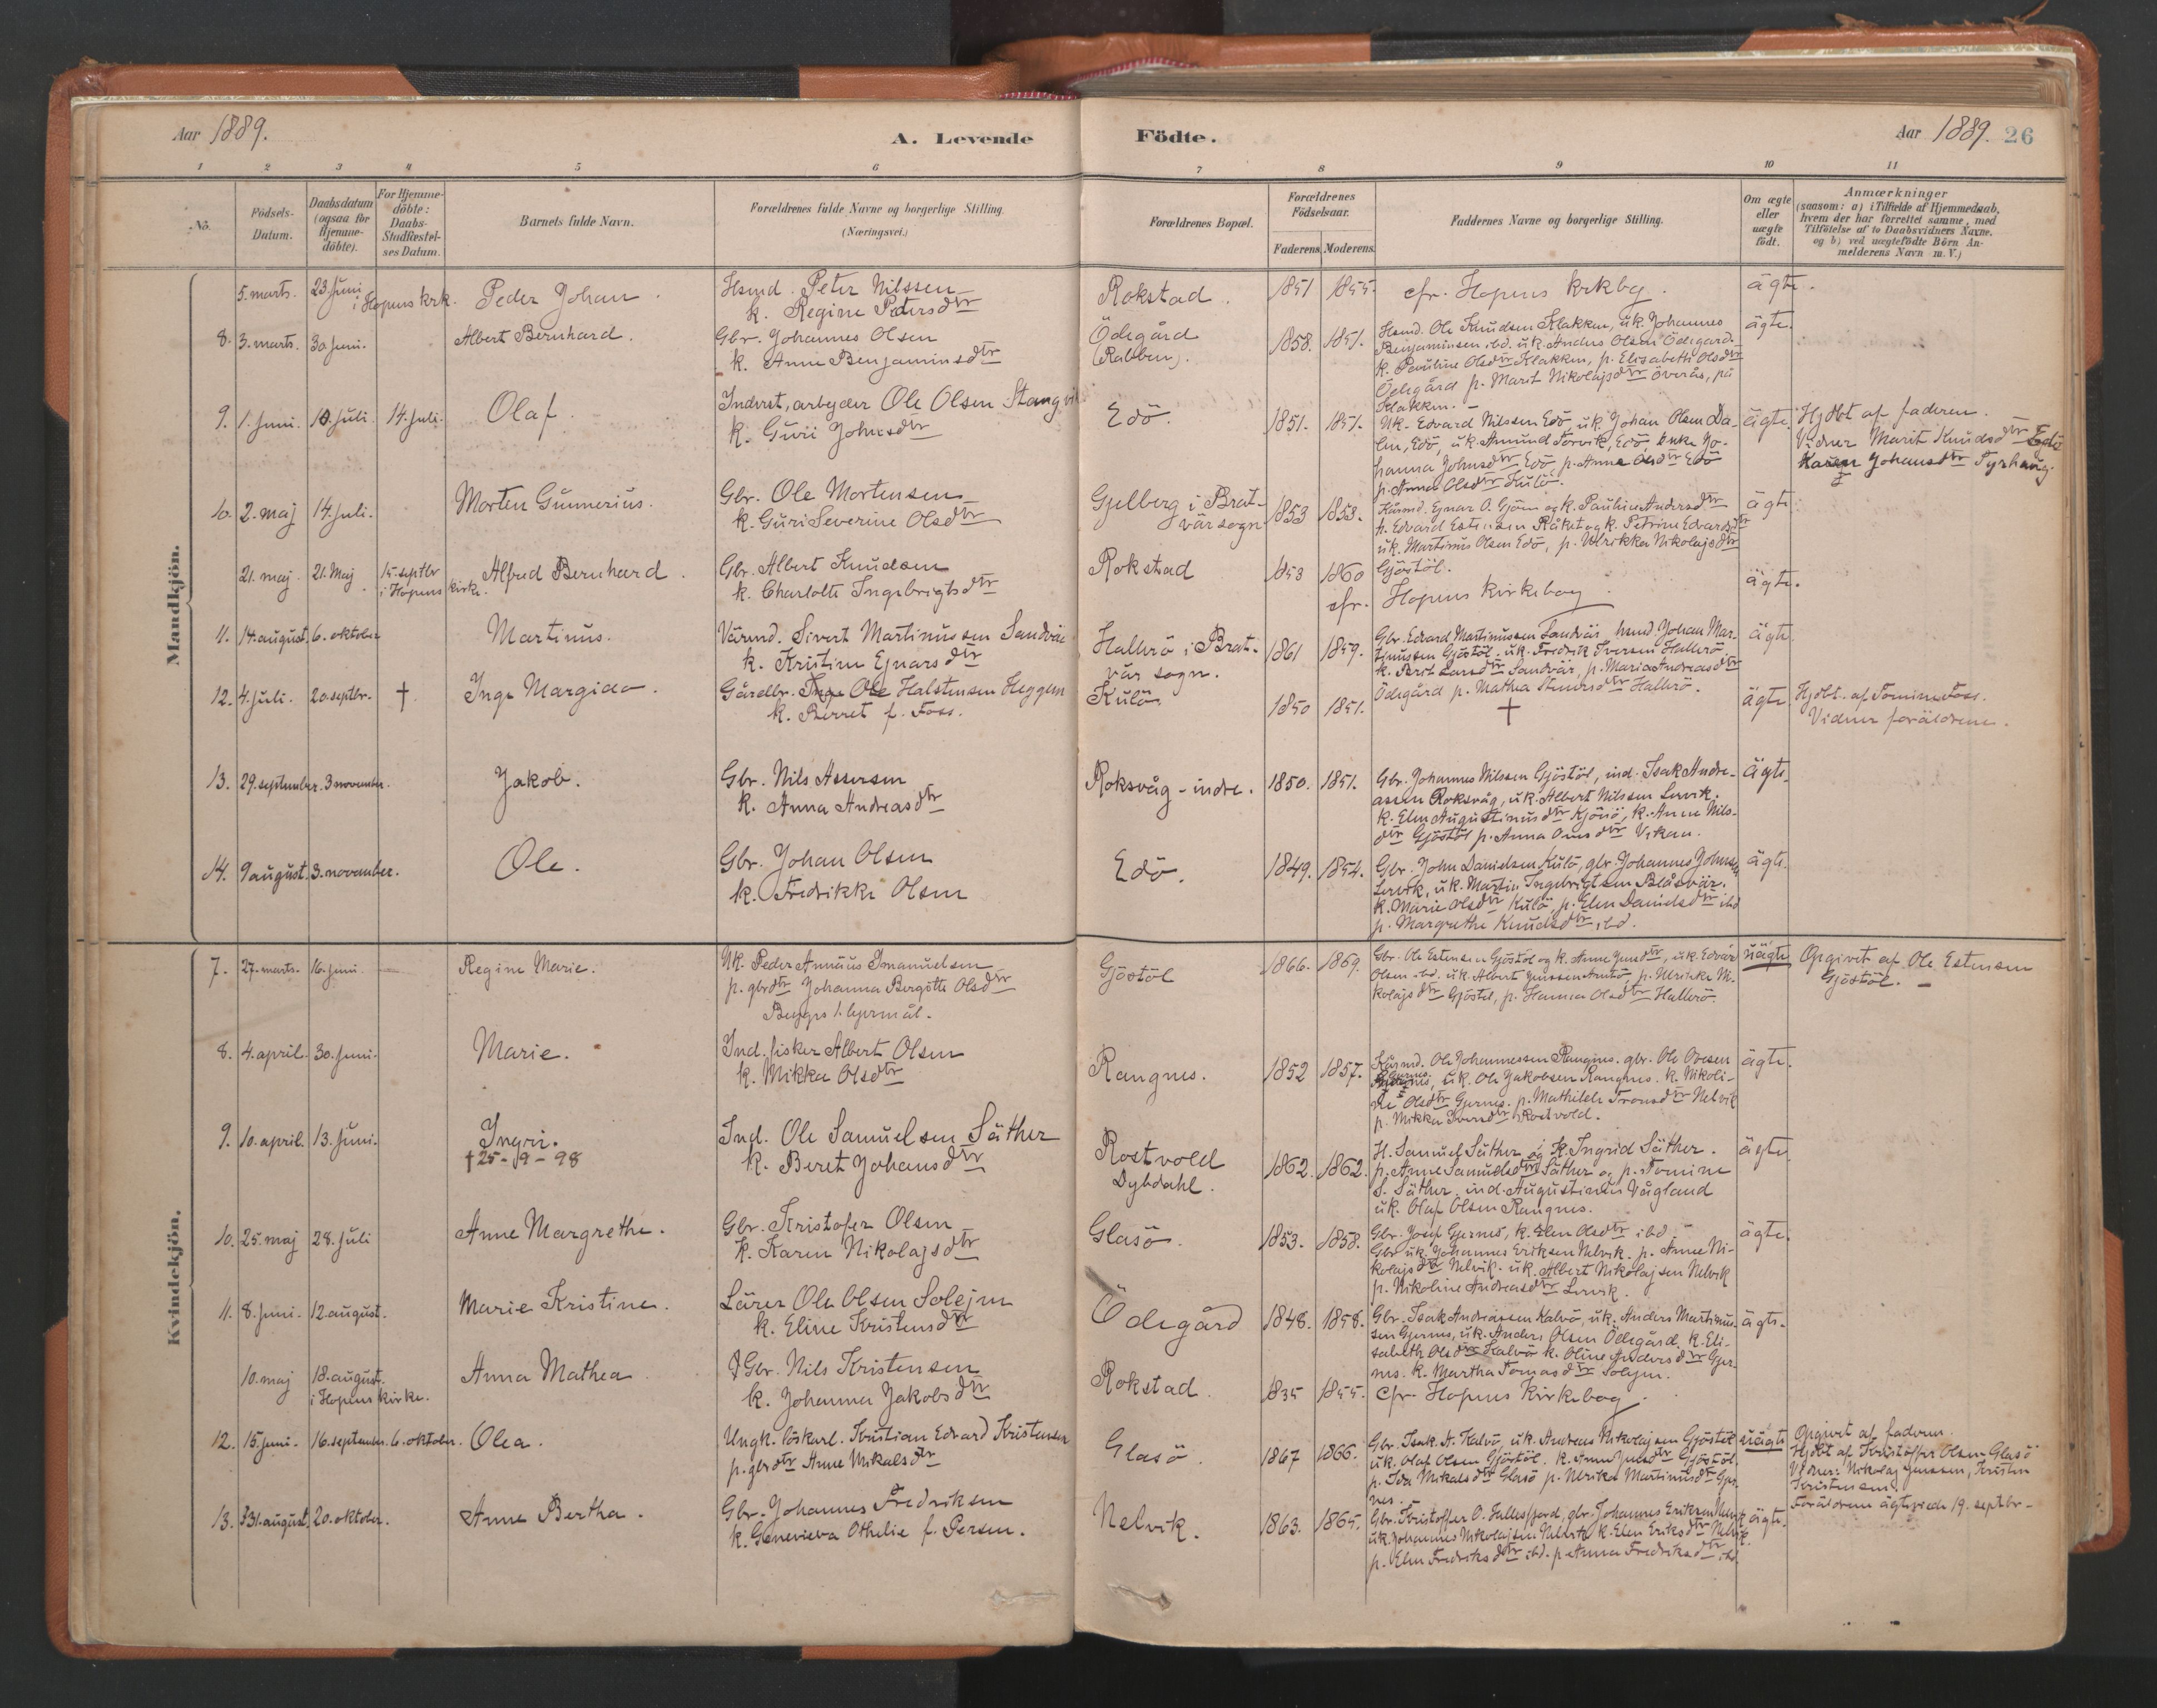 Aar 1889.
A. Levende
Födte.
Aar 1889. 26
1 2 3 4 5 6 7 8 9 10 11
No.
Födsels-Datum.
Daabsdatum (ogsaa for Hjemme-döbte).
For Hjemme-döbte: Daabs-Stadfæstel-ses Datum.
Barnets fulde Navn.
Forældrenes fulde Navne og borgerlige Stilling.
(Næringsvei.)
Forældrenes Bopæl.
Forældrenes Födselsaar.
Faderens. Moderens.
Faddernes Navne og borgerlige Stilling.
Om ægte eller uægte födt.
Anmærkninger
(saasom: a) i Tilfælde af Hjemmedaab,
hvem der har forrettet samme, med
Tilföielse af to Daabsvidners Navne.
og b) ved uægtefödte Börn An-
melderens Navn m. V.)
Mandkjön.
5. marts. 23. Juni i Hopens krk. Peder Johan.
Hsmd. Peter Nilssen
k. Regine Petersdtr
Rokstad. 1851 1855. cfr. Hopens krkbg. ägte.
8. 3. marts. 30. Juni. Albert Bernhard.
Gbr. Johannes Olsen
k. Anne Benjaminsdtr
Ödegård (Rabben). 1858. 1851.
Hsmd. Ole Knudsen Klakken, uk. Johannes
Benjaminsen ibd. uk. Anders Olsen Ödegard.
k. Pauline Olsdtr Klakken, p. Elisabeth Olsdtr
Ödegård p. Marit Nikolajsdtr Överås, på
Klakken. –
ägte.
9. 1. Juni. 10. Juli. 14. Juli. Olaf.
Inderst, arbejder Ole Olsen Stangvik
k. Guri Johnsdtr
Edö. 1851. 1851.
Uk. Edvard Nilssen Edö, uk. Johan Olsen Da-
len, Edö, uk. Amund Torvik, Edö, enke Jo-
hanna Johnsdtr Edö p. Anne Olsdtr Edö
p. Anna Olsdtr Kulö.
ägte.
Hjdbt af faderen.
Vidner Marit Knudsdtr Edö
Karen Johansdtr Tyrhaug.
10. 2. maj 14. Juli. Morten Gunnerius.
Gbr. Ole Mortensen
k. Guri Severine Olsdtr
Gjelberg i Brat-
vär sogn 1853 1853.
Kårmd. Ejnar O. Gjöen og k. Pauline Andersdtr
h. Edvard Estensen Råket og k. Petrine Edvardsdtr
uk. Martinus Olsen Edö, p. Ulrikka Nikolajsdtr
Gjöstöl.
ägte.
21. maj. 21. Maj. 15. septbr i Hopens kirke. Alfred Bernhard.
Gbr. Albert Knudsen
k. Charlotte Ingebrigtsdtr
Rokstad 1853 1860 cfr. Hopens kirkebog. ägte.
11. 14. august 6. oktober Martinus.
Värmd. Sivert Martinussen Sandvär
k. Kristine Ejnarsdtr
Hallerö i Brat-
vär sogn. 1861 1859.
Gbr. Edvard Martinussen Sandvär, hsmd. Johan Mar-
tinussen Gjöstöl. uk. Fredrik Iversen Hallerö.
k. Berit Larsdtr Sandvär, p. Maria Andreasdtr
Ödegård p. Mathea Steinersdtr Hallerö.
ägte.
12. 4. Juli. 20. septbr. † Inga Margido.
Gårdbr. Ole Halstensen Heggem
k. Berret f. Foss.
Kulö. 1850 1851. † ägte.
Hjdbt. af Tomine Foss.
Vidner foräldrene.
13. 29. september. 3 november. Jakob.
Gbr. Nils Assersen
k. Anna Andreasdtr
Roksvåg-indre. 1850. 1851.
Gbr. Johannes Nilssen Gjöstöl, ind. Isak Andre-
assen Roksvåg, uk. Albert Nilssen Lervik.
k. Elen Augustinusdtr Kjönö, k. Anne Nils-
dtr Gjöstöl p. Anna Onsdtr Vikan.
ägte.
14. 9 august. 3. november. Ole.
Gbr. Johan Olsen
k. Fredrikke Olsen
Edö. 1849. 1854.
Gbr. John Danielsen Kulö, gbr. Johannes Johnsen
Lervik, uk. Martin Ingebrigtsen Blåsvär.
k. Marie Olsdtr Kulö, p. Elen Danielsdtr ibd
p. Margrethe Knudsdtr ibd.
ägte.
Kvindekjön.
7. 27. marts. 16. Juni. Regine Marie.
Uk. Peder Annäus Imanuelsen
p. gbrdtr Johanna Bergitte Olsdtr
Begges 1. lejermål.
Gjöstöl 1866. 1869.
Gbr. Ole Estensen Gjöstöl og k. Anne Jensdtr, uk. Edvär
Olsen ibd. uk. Albert Jenssen Arntö, p. Ulrikke Ni-
kolajsdtr Gjöstöl, p. Hanna Olsdtr Hallerö.
uägte
Opgivet af Ole Estensen
Gjöstöl. –
8. 4. april. 30. Juni. Marie.
Ind. fisker Albert Olsen
k. Mikka Olsdtr
Rangnes. 1852 1857.
Kårmd. Ole Johannessen Rangnes. gbr. Ole Ovesen
Gjernes, uk. Ole Jakobsen Rangnes. k. Nikoli-
ne Olsdtr Gjernes. p. Mathilde Tronsdtr Nelvik
p. Mikka Iversdtr Rostvold.
ägte.
9. 10. april. 13. Juni. Ingrir.
† 25-9-98
Ind. Ole Samuelsen Säther
k. Beret Johansdtr
Rostvold
Dybdahl. 1862. 1862.
H. Samuel Säther og k. Ingrid Säther.
p. Anne Samuelsdtr Säther og p. Tomine
S. Säther. ind. Augustinus Vågland
uk. Olaf Olsen Rangnes.
ägte.
10. 25. maj 28. Juli Anne Margrethe.
Gbr. Kristofer Olsen
k. Karen Nikolajsdtr
Glasö. 1853. 1858.
Gbr. Josef Gjernes, k. Elen Olsdtr ibd.
Gbr uk. Johannes Eriksen Nelvik. p. Anne Ni-
kolajsdtr Nelvik. uk. Albert Nikolajsen Nelvik
p. Nikoline Andreasdtr Lervik.
ägte.
11. 8. Juni. 12. august. Marie Kristine.
Lärer Ole Olsen Solejm
k. Eline Kristensdtr
Ödegård 1848. 1858.
Gbr. Isak Andreassen Kalvö, uk. Anders Martinus-
sen Gjernes, uk. Anders Olsen Ödegård, k. Eli-
sabeth Olsdtr Kalvö k. Oline Andersdtr Gjer-
nes. k. Martha Tomasdtr Solejm.
ägte.
10. maj 18. august. i Hopens kirke. Anna Mathea
Gbr. Nils Kristensen
k. Johanna Jakobsdtr
Rokstad. 1835 1855. cfr. Hopens kirkebog.
12. 15. Juni. 16. september. 6. oktober. Olea.
Ungk. löskarl. Kristian Edvard Kristensen
p. gbrdtr Anne Mikalsdtr
Glasö. 1867 1866.
Gbr. Isak A. Kalvö, uk. Andreas Nikolajsen Gjöstöl
uk. Olaf Olsen Gjöstöl. k. Anne Jensdtr Gjöstöl.
p. Ida Mikalsdtr Glasö p. Ulrika Martinusdtr Gjer-
nes. –
uägte
Opgivet af faderen
Hjdbt af Kristoffer Olsen Glasö
Vidner: Nikolaj Jenssen, Kristen
Kristensen.
Foräldrene ägteviede 19. septbr-
13. 31. august. 20. oktober. Anne Bertha.
Gbr. Johannes Fredriksen
k. Genevieva Othelie f. Persen.
Nelvik. 1863. 1865.
Gbr. Kristoffer O. Gullesfjord, gbr. Johannes Eriksen Nelvik
uk. Johannes Nikolajsen Nelvik k. Elen Eriksdtr Nelvik.
p. Elen Fredriksdtr ibd. p. Anna Fredriksdtr ibd.
ägte.